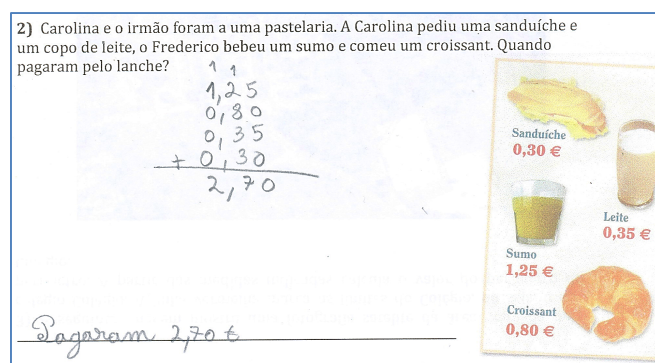 2) Carolina e o irmão foram a uma pastelaria. A Carolina pediu uma sanduíche e
um copo de leite, o Frederico bebeu um sumo e comeu um croissant. Quando
pagaram pelo lanche?
1 1
1,25
0,80
0,35
+ 0,30
2,70
Sanduíche
0,30 €
Leite
0,35 €
Sumo
1,25 €
Croissant
0,80 €
Pagaram 2,70 €